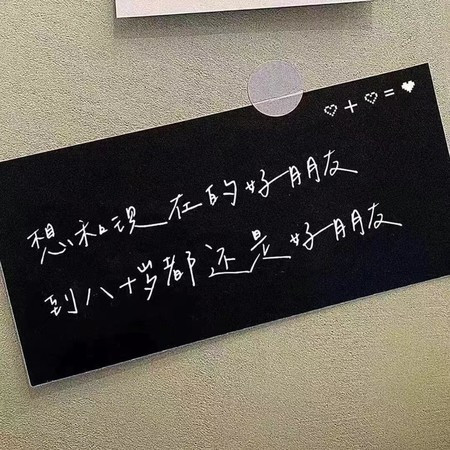 ♡+♡=♥
想和现在的好朋友
到八十岁都还是好朋友